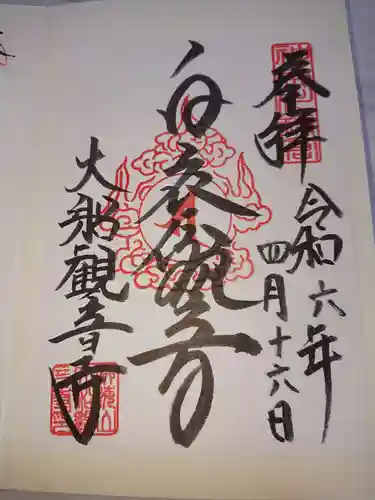 奉拝
令和六年
四月十六日
白衣観音
大船観音寺